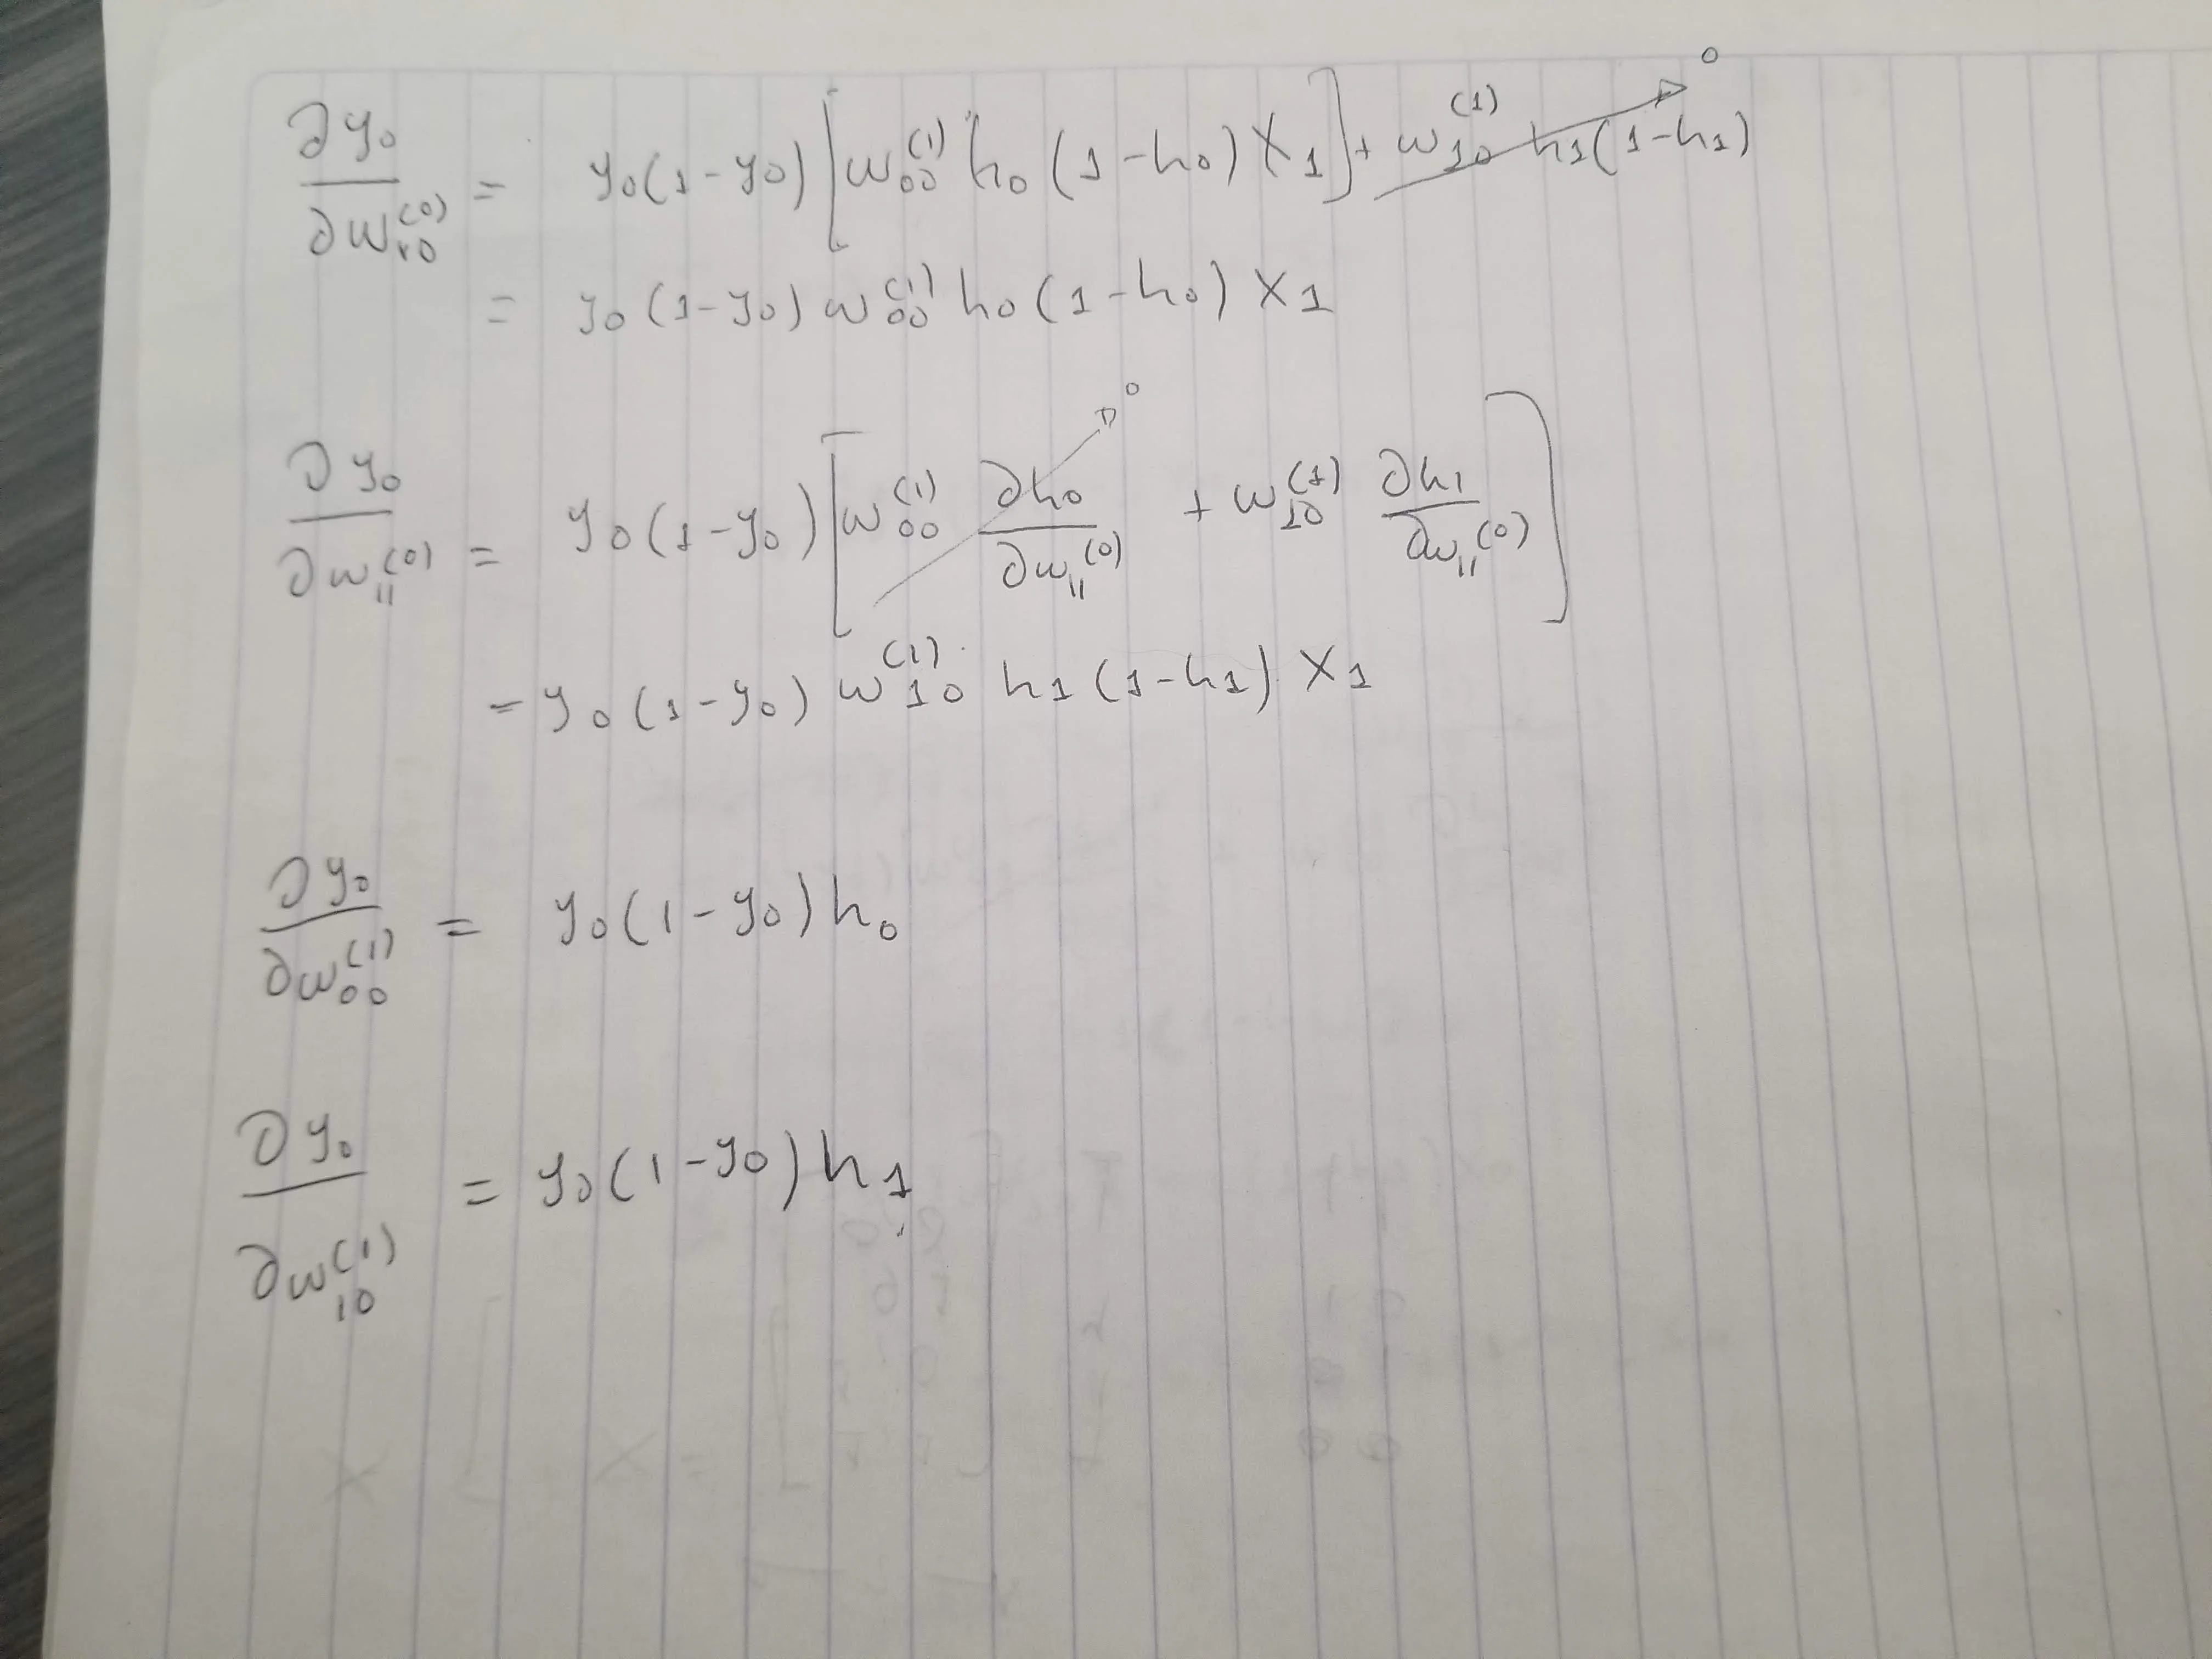 ∂y₀/∂w₁₀⁽⁰⁾ = y₀(1-y₀)[w₀₀⁽¹⁾ h₀(1-h₀) x₁] + w₁₀⁽¹⁾ h₁(1-h₁) → 0
= y₀(1-y₀) w₀₀⁽¹⁾ h₀(1-h₀) x₁
∂y₀/∂w₁₁⁽⁰⁾ = y₀(1-y₀)[w₀₀⁽¹⁾ ∂h₀/∂w₁₁⁽⁰⁾ → 0 + w₁₀⁽¹⁾ ∂h₁/∂w₁₁⁽⁰⁾]
= y₀(1-y₀) w₁₀⁽¹⁾ h₁(1-h₁) x₁
∂y₀/∂w₀₀⁽¹⁾ = y₀(1-y₀)h₀
∂y₀/∂w₁₀⁽¹⁾ = y₀(1-y₀)h₁